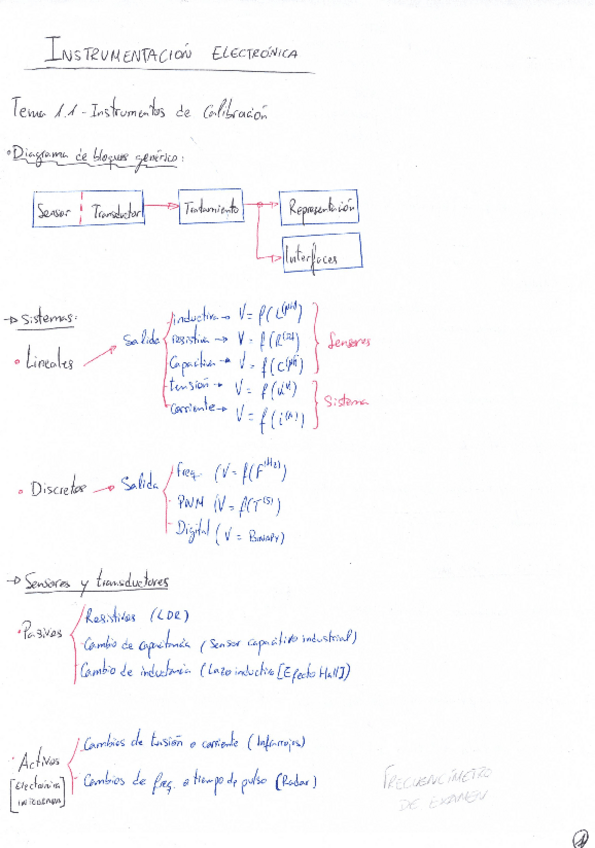 INSTRUMENTACIÓN ELECTRÓNICA
Tema 1.1 - Instrumentos de Calibración
• Diagrama de bloques genérico:
Sensor Transductor → Tratamiento → Representación
Interfaces
→ Sistemas:
• Lineales → Salida
inductiva → V = f(L
resistiva → V = f(R
Capacitiva → V = f(C
Sensores
tensión → V = f(
corriente → V = f(i
Sistema
• Discretos → Salida
Freq. (V = f(F (Hz))
PWM (V = f(T (s))
Digital (V = BINARY)
→ Sensores y transductores
• Pasivos
Resistivos (LDR)
Cambio de capacitancia (Sensor capacitivo industrial)
Cambio de inductancia (Lazo inductivo [Efecto Hall])
• Activos
[Electrónica integrada]
Cambios de tensión o corriente (Infrarrojos)
Cambios de freq. o tiempo de pulso (Radar)
FRECUENCÍMETRO
DE EXAMEN
1